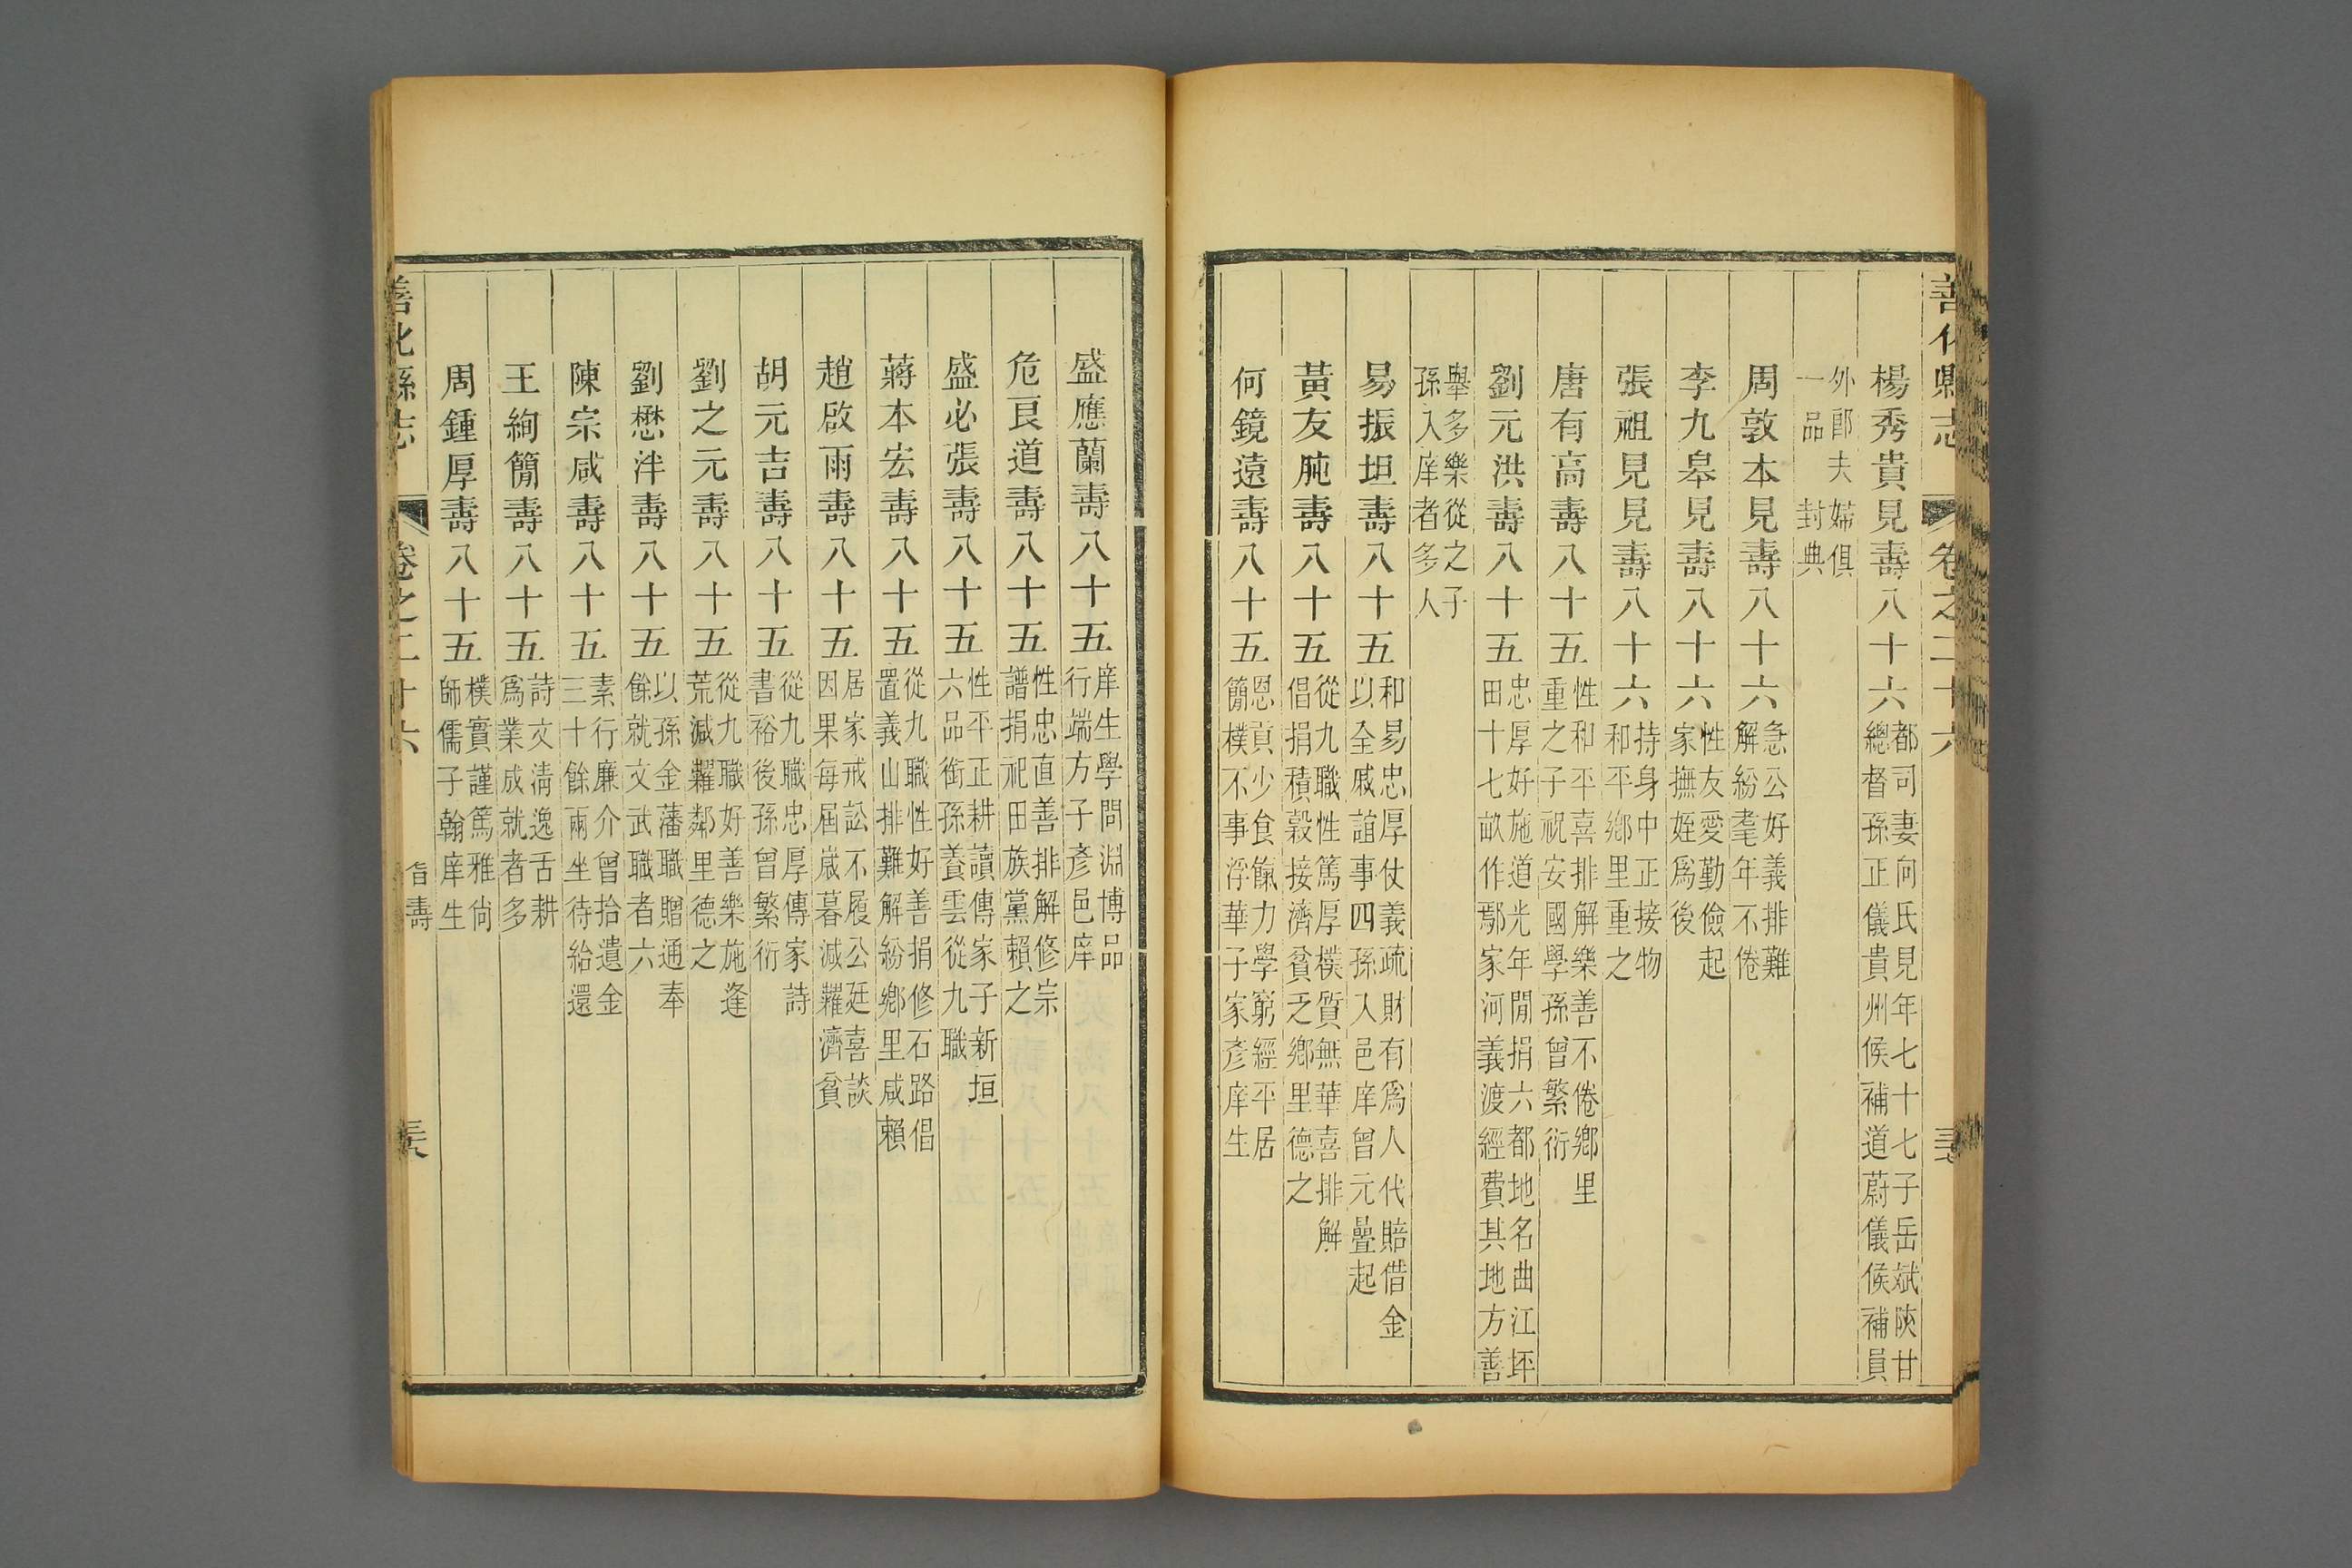 善化縣志 卷之二十六
楊秀貴見壽八十六 都司妻向氏見年七十七子岳斌陝甘
總督孫正儀貴州候補道蔚儀候補員
外郎夫婦俱
一品 封典
周敦本見壽八十六 急公好義排難
解紛耄年不倦
李九皋見壽八十六 性友愛勤儉起
家撫姪為後
張祖見見壽八十六 持身中正接物
和平鄉里重之
唐有高壽八十五 性和平喜排解樂善不倦鄉里
重之子祝安國學孫曾繁衍
劉元洪壽八十五 忠厚好施道光年閒捐六都地名曲江坪
田十七畝作鄢家河義渡經費其地方善
舉多樂從之子
孫入庠者多人
易振坦壽八十五 和易忠厚仗義疏財有為人代賠借金
以全戚誼事四孫入邑庠曾元疊起
黃友肫壽八十五 從九職性篤厚樸質無華喜排解
倡捐積穀接濟貧乏鄉里德之
何鏡遠壽八十五 恩貢少食餼力學窮經平居
簡樸不事浮華子家彥庠生
盛應蘭壽八十五 庠生學問淵博品
行端方子彥邑庠
危艮道壽八十五 性忠直善排解修宗
譜捐祀田族黨賴之
盛必張壽八十五 性平正耕讀傳家子新垣
六品銜孫養雲從九職
蔣本宏壽八十五 從九職性好善捐修石路倡
置義山排難解紛鄉里咸賴
趙啟雨壽八十五 居家戒訟不履公廷喜談
因果每屆嵗暮減糶濟貧
胡元吉壽八十五 從九職忠厚傳家詩
書裕後孫曾繁衍
劉之元壽八十五 從九職好善樂施逢
荒減糶鄰里德之
劉懋泮壽八十五 以孫金藩職贈通奉
餘就文武職者六
陳宗咸壽八十五 素行廉介曾拾遺金
三十餘兩坐待給還
王絢簡壽八十五 詩文淸逸舌耕
為業成就者多
周鍾厚壽八十五 樸實謹篤雅尙
師儒子翰庠生
善化縣志 卷之二十六 耆壽